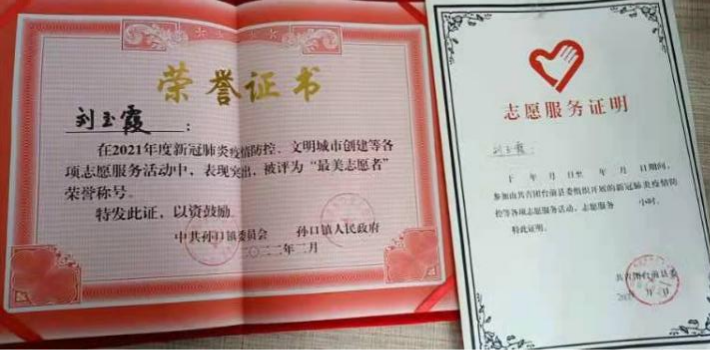 荣誉证书
刘玉霞：
在2021年度新冠肺炎疫情防控、文明城市创建等各
项志愿服务活动中，表现突出，被评为“最美志愿者”
荣誉称号。
特发此证，以资鼓励。
中共孙口镇委员会 孙口镇人民政府
二〇二二年二月
志愿服务证明
刘玉霞：
于 年 月 日至 年 月 日期间，
参加由共青团台前县委组织开展的新冠肺炎疫情防
控等各项志愿服务活动，志愿服务 小时。
特此证明。
共青团台前县委